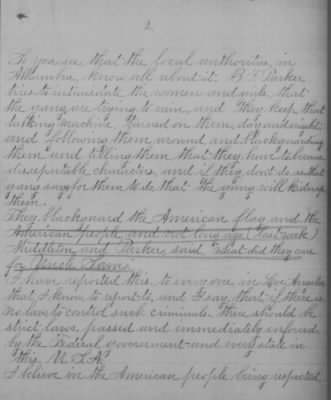 2.
To you see, that the local authorities in
Alhambra, know all about it. B. F. Parker
tries to intimidate the women and girls that
the gang are trying to ruin, and they keep that
talking machine turned on them, day and night
and following them around and blackguarding
them and telling them that they have to become
disreputable characters, and if they don't do as that
gang says for them to do that the gang will kidnap
them.
They blackguard the American flag and the
American people, and not long ago (last week)
Middleton and Parker, said, "what did they care
for Uncle Sam.
I have reported this, to everyone in Los Angeles
that I know to report to, and I say that if there is
no law to control such criminals there should be
strict laws passed and immediately enforced,
by the Federal government and every state in
this, U.S.A.
I believe in the American people being respected